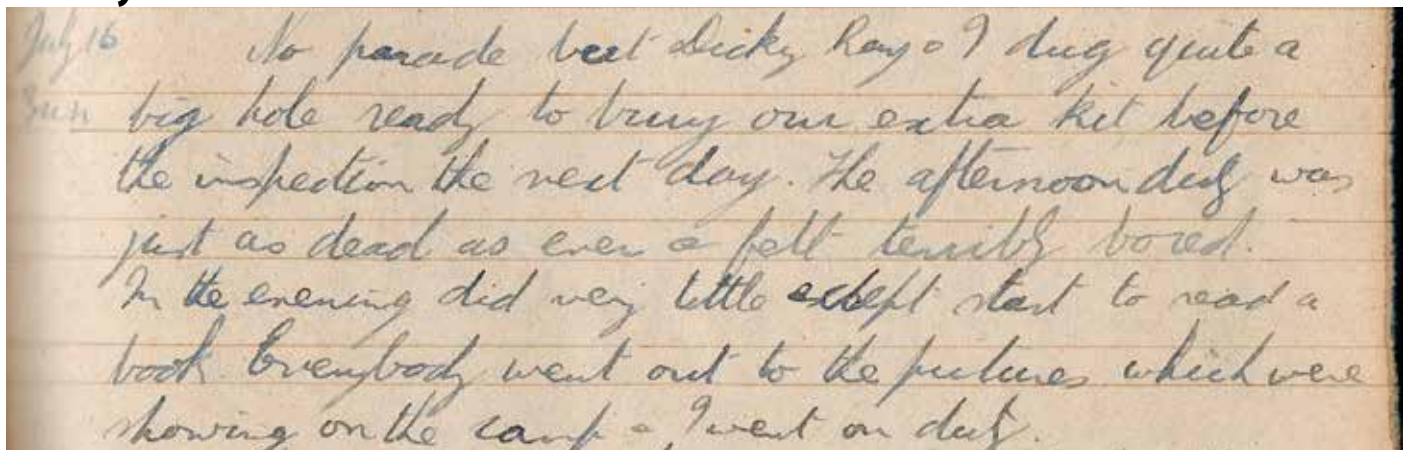 July 16 No parade but Dicky Ray & I dug quite a
Sun big hole ready to bury our extra kit before
the inspection the next day. The afternoon duty was
just as dead as ever & felt terribly bored.
In the evening did very little except start to read a
book. Everybody went out to the pictures which were
showing on the camp & I went on duty.